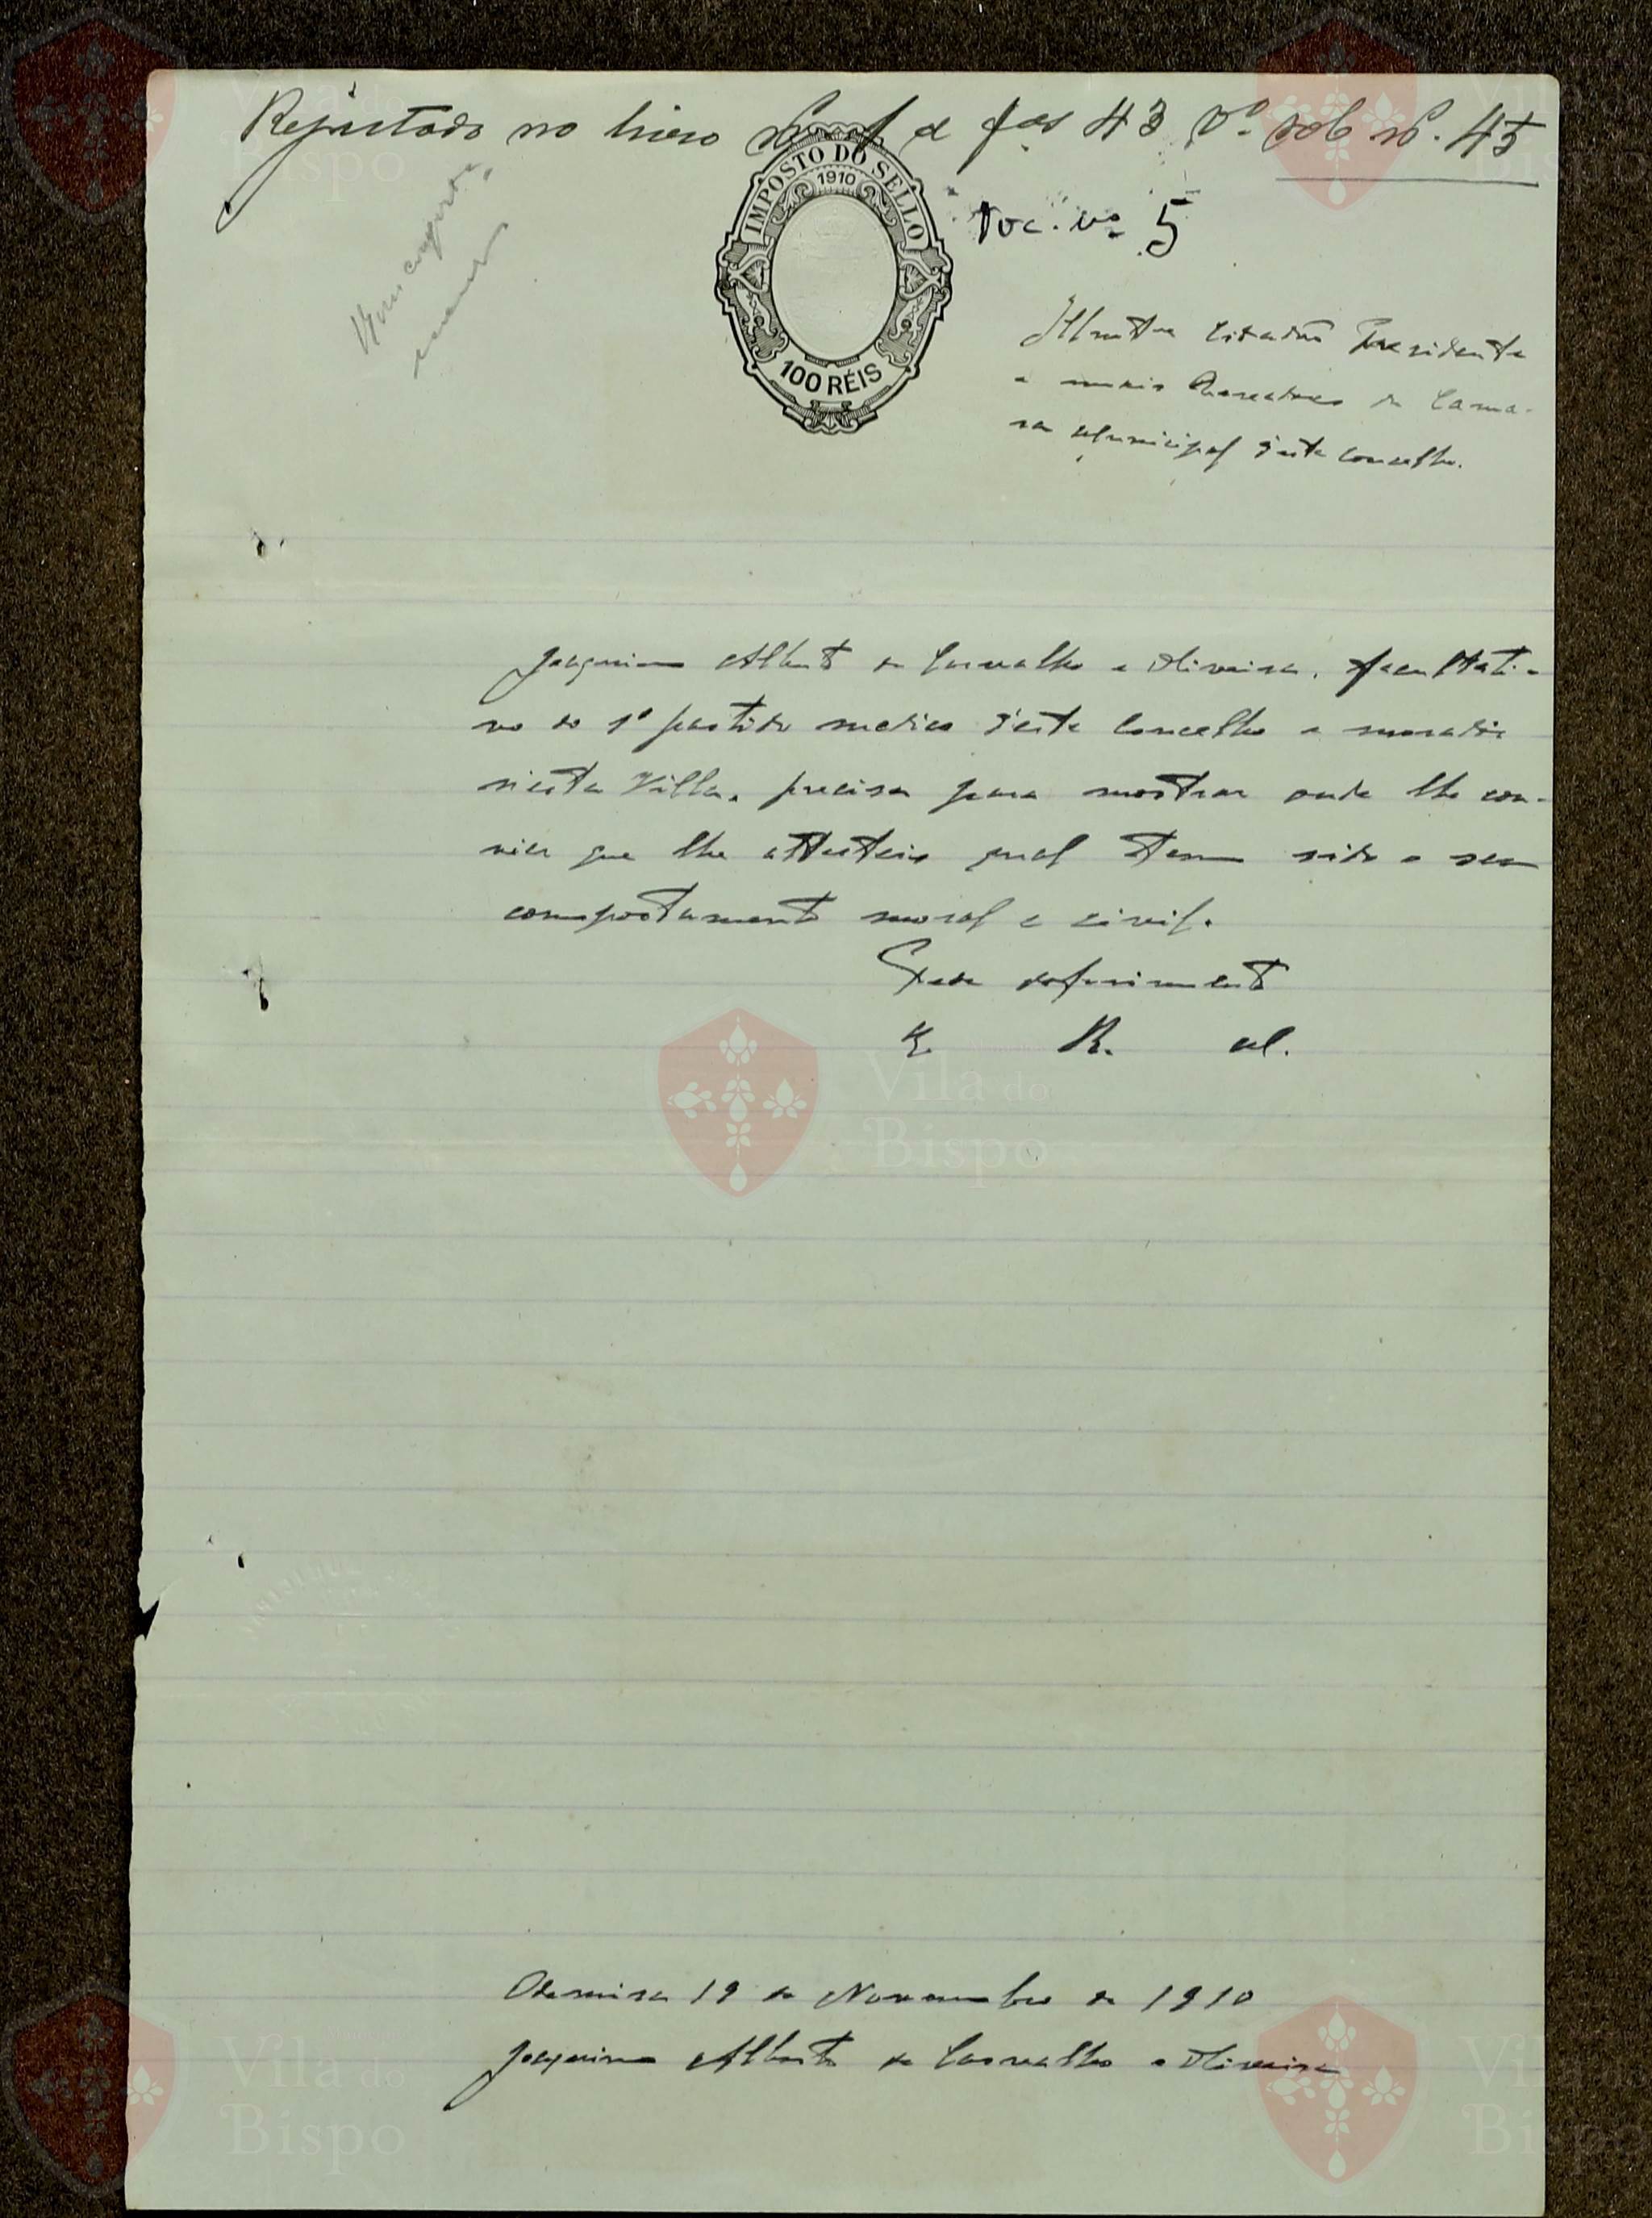 Registado no livro Nº 1 a fas 43 vº sob nº. 45
Bom comporta
mento
IMPOSTO DO SELLO
1910
100 RÉIS
Doc. nº 5
Illustre Cidadão Presidente
e mais Vereadores da Cama-
ra Municipal d'este Concelho.
Joaquim Alberto de Carvalho e Oliveira, facultati-
vo do 1º partido medico d'este Concelho e morador
n'esta Villa, precisa para mostrar onde lhe con-
vier que lhe attesteis qual tem sido o seu
comportamento moral e civil.
Pede deferimento
E. R. M.
Odemira 19 de Novembro de 1910
Joaquim Alberto de Carvalho e Oliveira
Vila do
Bispo